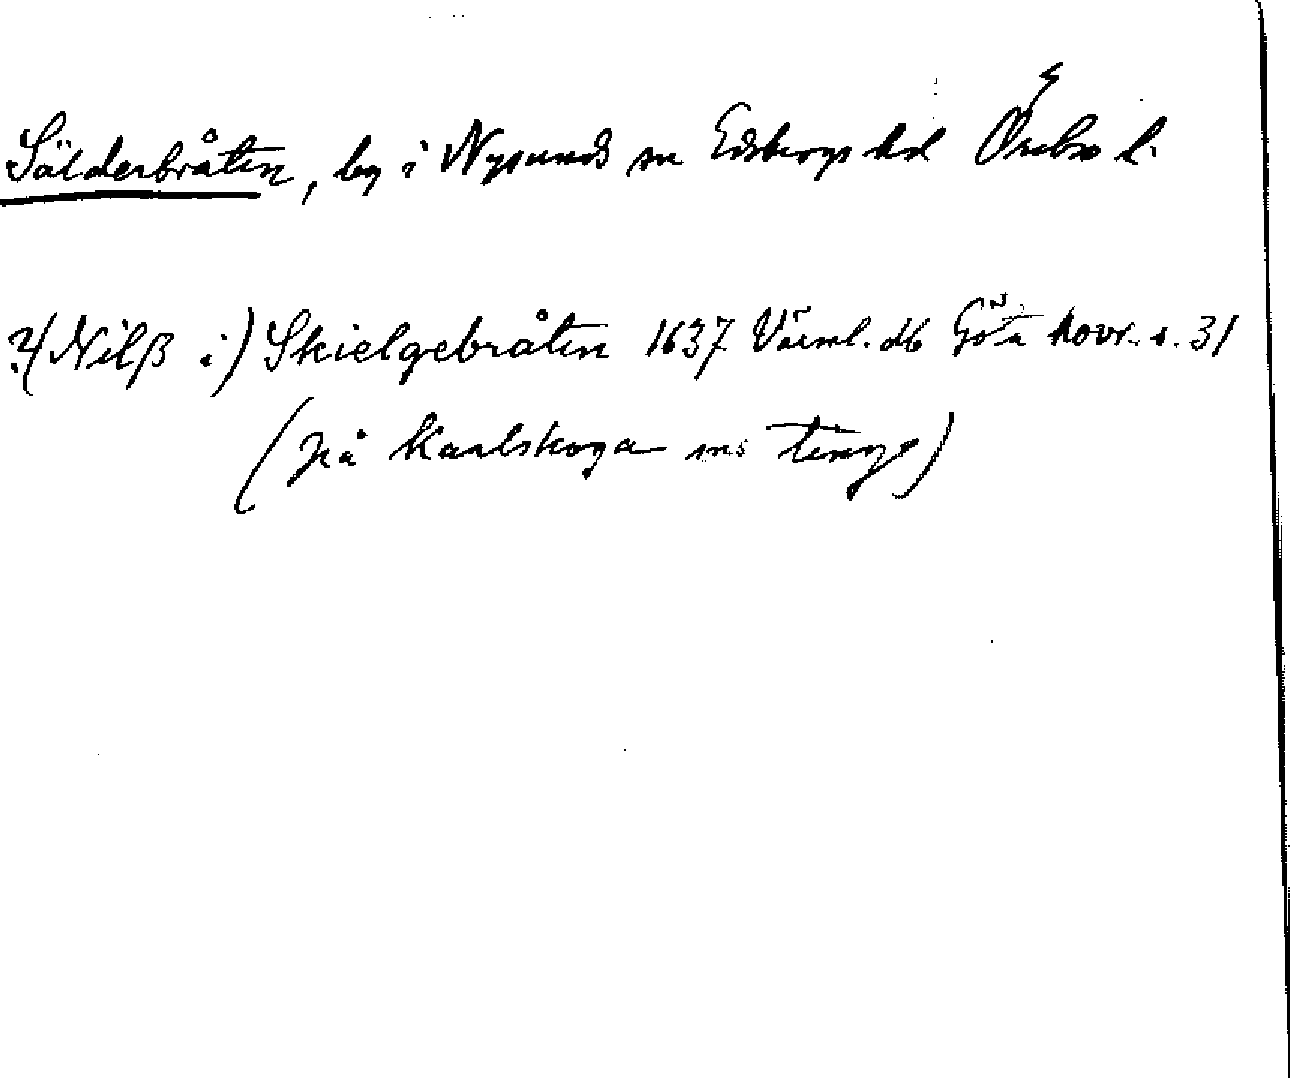 Sälderbråten, by i Nysunds sn Edsbergs hd Örebro l.
?(Nilß i) Skielgebråten 1637 Värml. db Göta hovr. s. 31
(på Karlskoga sns ting)